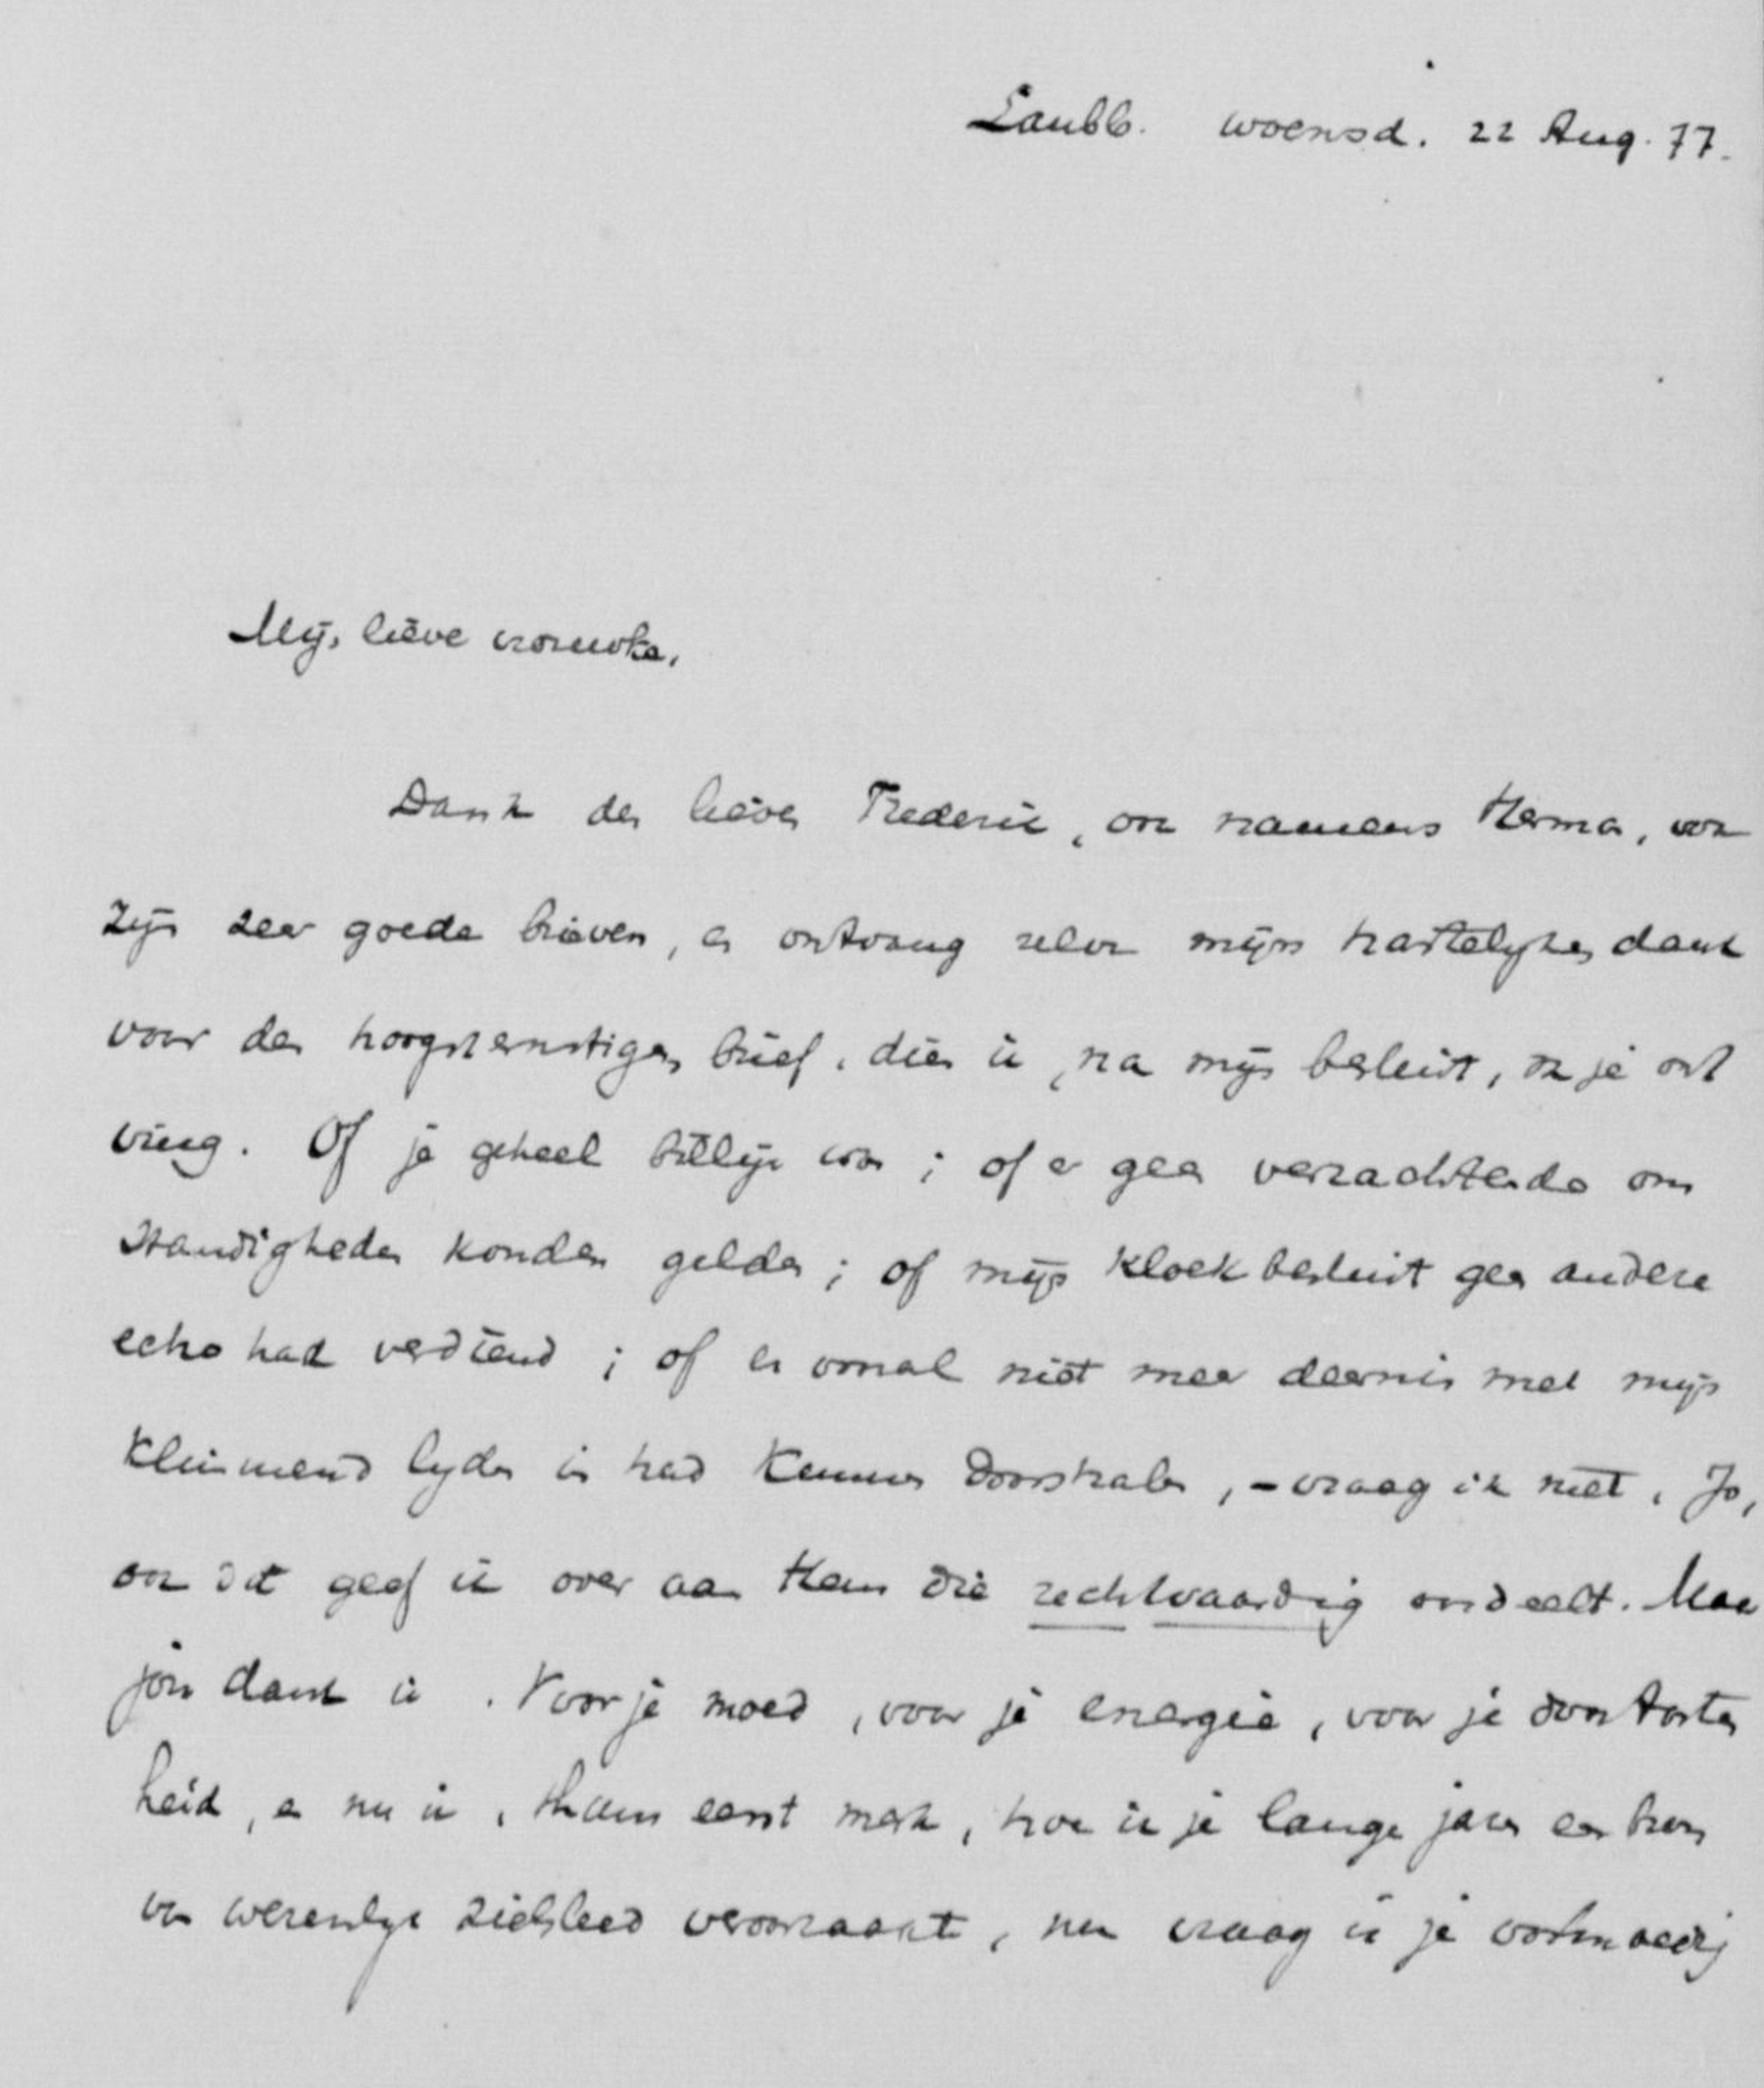 Laubb. woensd. 22 Aug. 77.
Mijn lieve vrouwke,
Dank den lieven Frederik, ook namens Herma, voor
zijn zeer goede brieven, en ontvang zelve mijn hartelyken dank
voor den hoogsternstigen brief, dien ik, na mijn besluit, van je ont
ving. Of je geheel billijk was; of er geen verzachtende om
standigheden konden gelden; of mijn kloek besluit geen andere
echo had verdiend; of er vooral niet meer deernis met mijn
klimmend lyden in had kunnen doorstralen, - vraag ik niet. Jo,
ook dat geef ik over aan Hem die rechtvaardig oordeelt. Maar
jou dank ik. Voor je moed, voor je energie, voor je doortasten
heid, en nu ik, thans eerst merk, hoe ik je lange jaren een bron
van wezenlyk zielsleed veroorzaakte, nu vraag ik je ootmoedig